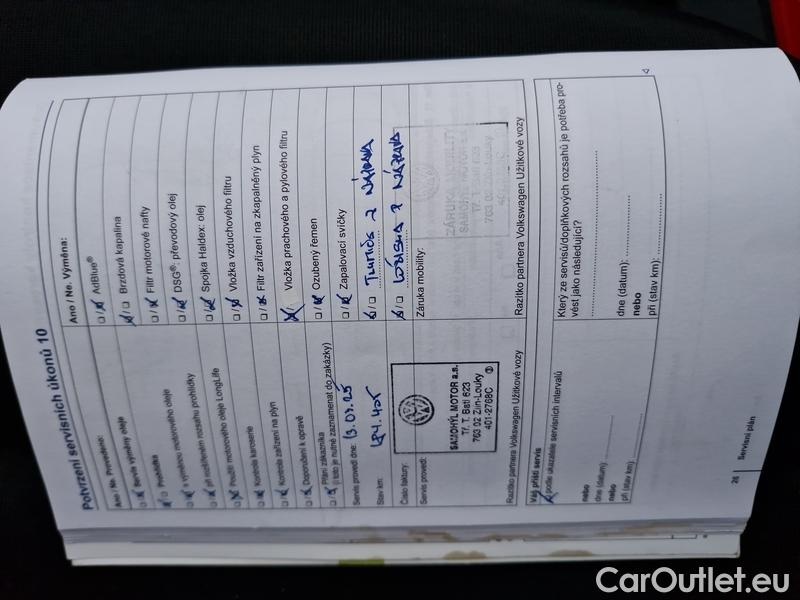 Potvrzení servisních úkonů 10
Ano / Ne. Provedeno:
Servis výměny oleje
Prohlídka
s výměnou motorového oleje
při rozšířeném rozsahu prohlídky
Použití motorového oleje LongLife
Kontrola karoserie
Kontrola zařízení na plyn
Doporučení k opravě
Přání zákazníka
(i toto je nutné zaznamenat do zakázky)
Servis provedl dne:
Stav km:
Číslo faktury:
Servis provedl:
SAMOHÝL MOTOR a.s.
Tř. T. Bati 623
763 02 Zlín-Louky
401-2768C
Razítko partnera Volkswagen Užitkové vozy
Ano / Ne. Výměna:
AdBlue®
Brzdová kapalina
Filtr motorové nafty
DSG®: převodový olej
Spojka Haldex: olej
Vložka vzduchového filtru
Filtr zařízení na zkapalněný plyn
Vložka prachového a pylového filtru
Ozubený řemen
Zapalovací svíčky
Záruka mobility:
Razítko partnera Volkswagen Užitkové vozy
Váš příští servis
podle ukazatele servisních intervalů
nebo
dne (datum):
nebo
při (stav km):
Který ze servisů/doplňkových rozsahů je potřeba pro-
vést jako následující?
dne (datum):
nebo
při (stav km):
26
Servisní plán
CarOutlet.eu